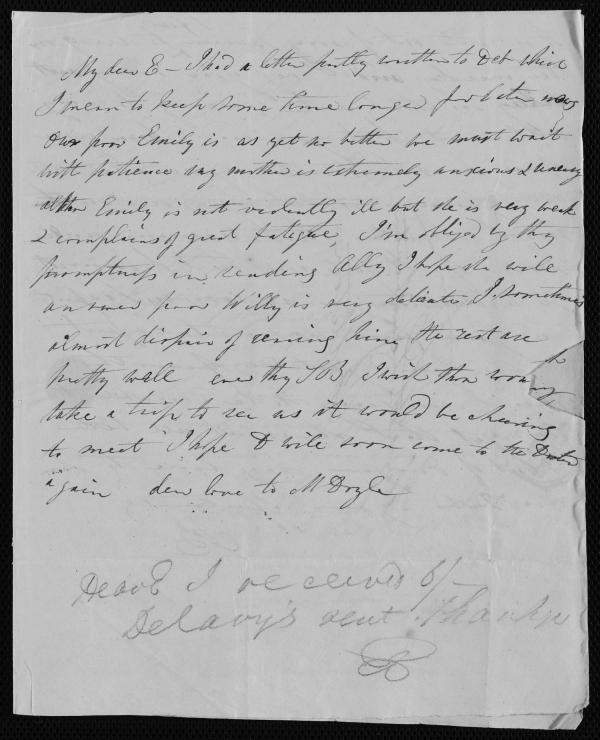 My dear E – I had a letter partly written to Deb which
I mean to keep some time longer for better news
Our poor Emily is as yet no better we must wait
with patience my mother is extremely anxious & uneasy
altho Emily is not violently ill but she is very weak
& complains of great fatigue, I'm obliged by thy
promptness in sending Ally I hope she will
answer poor Willy is very delicate I sometimes
almost dispair of rearing him the rest are
pretty well ever thy SB I wish thou would
take a trip to see us it would be cheering
to meet I hope D will soon come to the
again dear love to M Doyle
Dear E I received 6/-
Delany's rent. Thank you